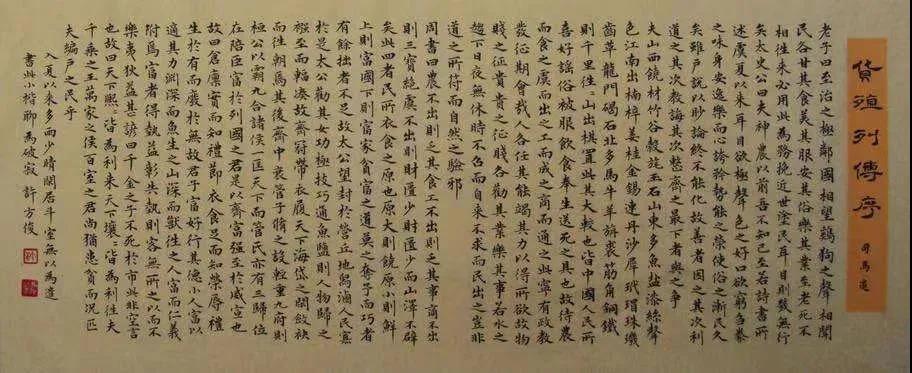 貨殖列傳序
司馬遷
老子曰至治之極鄰國相望鷄狗之聲相聞
民各甘其食美其服安其俗樂其業至老死不
相往來必用此為務挽近世塗民耳目則幾無行
矣太史公曰夫神農以前吾不知已至若詩書所
述虞夏以來耳目欲極聲色之好口欲窮芻豢
之味身安逸樂而心誇矜勢能之榮使俗之漸民久
矣雖戶說以眇論終不能化故善者因之其次利
道之其次教誨其次整齊之最下者與之爭
夫山西饒材竹穀旄玉石山東多魚鹽漆絲聲
色江南出楠梓姜桂金錫連丹沙犀玳瑁珠璣
齒革龍門碣石北多馬牛羊旃裘筋角銅鐵
則千里往往山出棋置此其大較也皆中國人民所
喜好謠俗被服飲食奉生送死之具也故待農
而食之虞而出之工而成之商而通之此寧有政教
發征期會哉人各任其能竭其力以得所欲故物
賤之征貴貴之征賤各勸其業樂其事若水之
趨下日夜無休時不召而自來不求而民出之豈非
道之所符而自然之驗邪
周書曰農不出則乏其食工不出則乏其事商不出
則三寶絕虞不出則財匱少財匱少而山澤不辟
矣此四者民所衣食之原也原大則饒原小則鮮
上則富國下則富家貧富之道莫之奪予而巧者
有餘拙者不足故太公望封於營丘地舄鹵人民寡
於是太公勸其女功極技巧通魚鹽則人物歸之
繦至而輻湊故齊冠帶衣履天下海岱之間斂袂
而往朝焉其後齊中衰管子修之設輕重九府則
桓公以霸九合諸侯一匡天下而管氏亦有三歸位
在陪臣富於列國之君是以齊富強至於威宣也
故曰倉廩實而知禮節衣食足而知榮辱禮
生於有而廢於無故君子富好行其德小人富以
適其力淵深而魚生之山深而獸往之人富而仁義
附焉富者得執益彰失執則客無所之以而不
樂夷狄益甚諺曰千金之子不死於市此非空言
也故曰天下熙熙皆為利來天下壤壤皆為利往夫
千乘之王萬家之侯百室之君尚猶患貧而況匹
夫編戶之民乎
入夏以來多雨少晴閑居斗室無以為遣
書此小楷聊為破寂許方俊